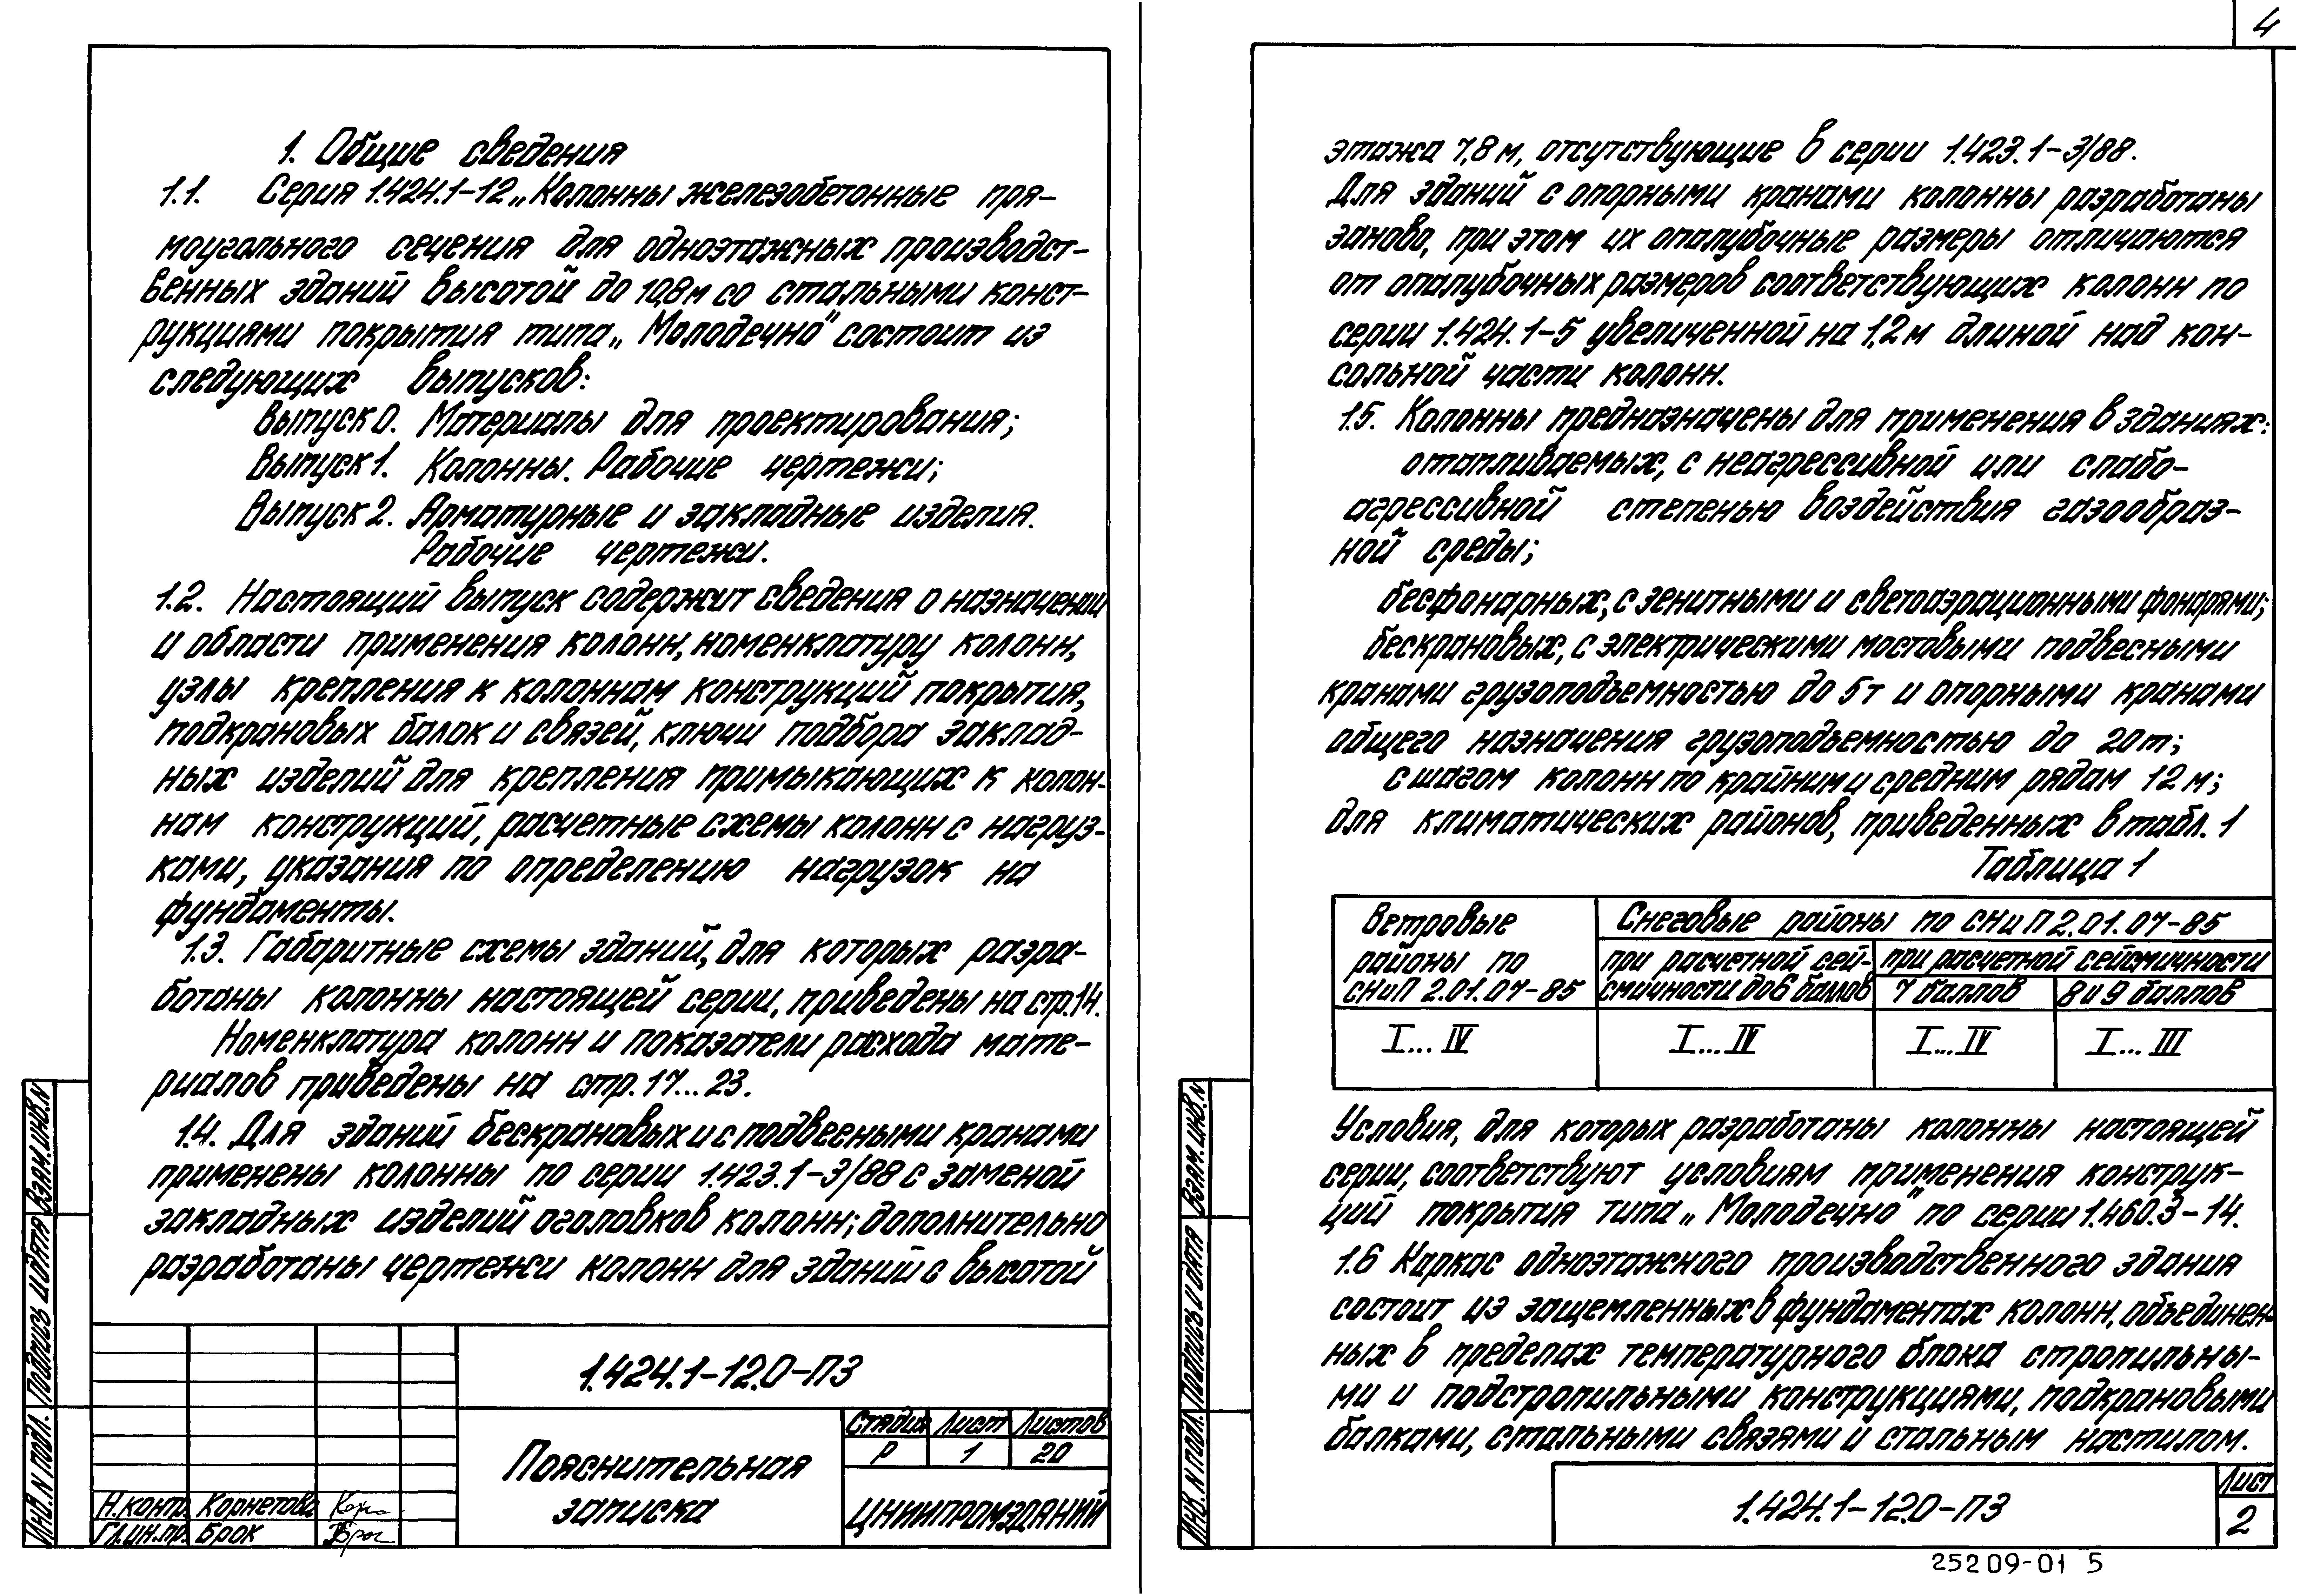 1. Общие сведения
1.1. Серия 1.424.1-12 „Колонны железобетонные пря-
моугольного сечения для одноэтажных производст-
венных зданий высотой до 10,8м со стальными конст-
рукциями покрытия типа „Молодечно" состоит из
следующих выпусков:
Выпуск 0. Материалы для проектирования;
Выпуск 1. Колонны. Рабочие чертежи;
Выпуск 2. Арматурные и закладные изделия.
Рабочие чертежи.
1.2. Настоящий выпуск содержит сведения о назначении
и области применения колонн, номенклатуру колонн,
узлы крепления к колоннам конструкций покрытия,
подкрановых балок и связей, ключи подбора заклад-
ных изделий для крепления примыкающих к колон-
нам конструкций, расчетные схемы колонн с нагруз-
ками, указания по определению нагрузок на
фундаменты.
1.3. Габаритные схемы зданий, для которых разра-
ботаны колонны настоящей серии, приведены на стр.14.
Номенклатура колонн и показатели расхода мате-
риалов приведены на стр.17...23.
1.4. Для зданий бескрановых и с подвесными кранами
применены колонны по серии 1.423.1-3/88 с заменой
закладных изделий оголовков колонн; дополнительно
разработаны чертежи колонн для зданий с высотой
1.424.1-12.0-ПЗ
Пояснительная
записка
Стадия Лист Листов
Р 1 20
ЦНИИПРОМЗДАНИЙ
Н.контр. Корнетова
Гл.ин.пр. Брок
Взам.инв.N
Подпись и дата
Инв.N подл.
4
этажа 7,8 м, отсутствующие в серии 1.423.1-3/88.
Для зданий с опорными кранами колонны разработаны
заново, при этом их опалубочные размеры отличаются
от опалубочных размеров соответствующих колонн по
серии 1.424.1-5 увеличенной на 1,2 м длиной над кон-
сольной части колонн.
1.5. Колонны предназначены для применения в зданиях:
отапливаемых, с неагрессивной или слабо-
агрессивной степенью воздействия газообраз-
ной среды;
бесфонарных, с зенитными и светоаэрационными фонарями;
бескрановых, с электрическими мостовыми подвесными
кранами грузоподъемностью до 5т и опорными кранами
общего назначения грузоподъемностью до 20т;
с шагом колонн по крайним и средним рядам 12 м;
для климатических районов, приведенных в табл. 1
Таблица 1
Ветровые
районы по
СНиП 2.01.07-85
Снеговые районы по СНиП 2.01.07-85
при расчетной сей-
смичности до 6 баллов
при расчетной сейсмичности
7 баллов 8 и 9 баллов
I...IV I...IV I...IV I...III
Условия, для которых разработаны колонны настоящей
серии, соответствуют условиям применения конструк-
ций покрытия типа „Молодечно" по серии 1.460.3-14.
1.6 Каркас одноэтажного производственного здания
состоит из защемленных в фундаментах колонн, объединен-
ных в пределах температурного блока стропильны-
ми и подстропильными конструкциями, подкрановыми
балками, стальными связями и стальным настилом.
1.424.1-12.0-ПЗ
Лист
2
Взам.инв.N
Подпись и дата
Инв.N подл.
25209-01 5